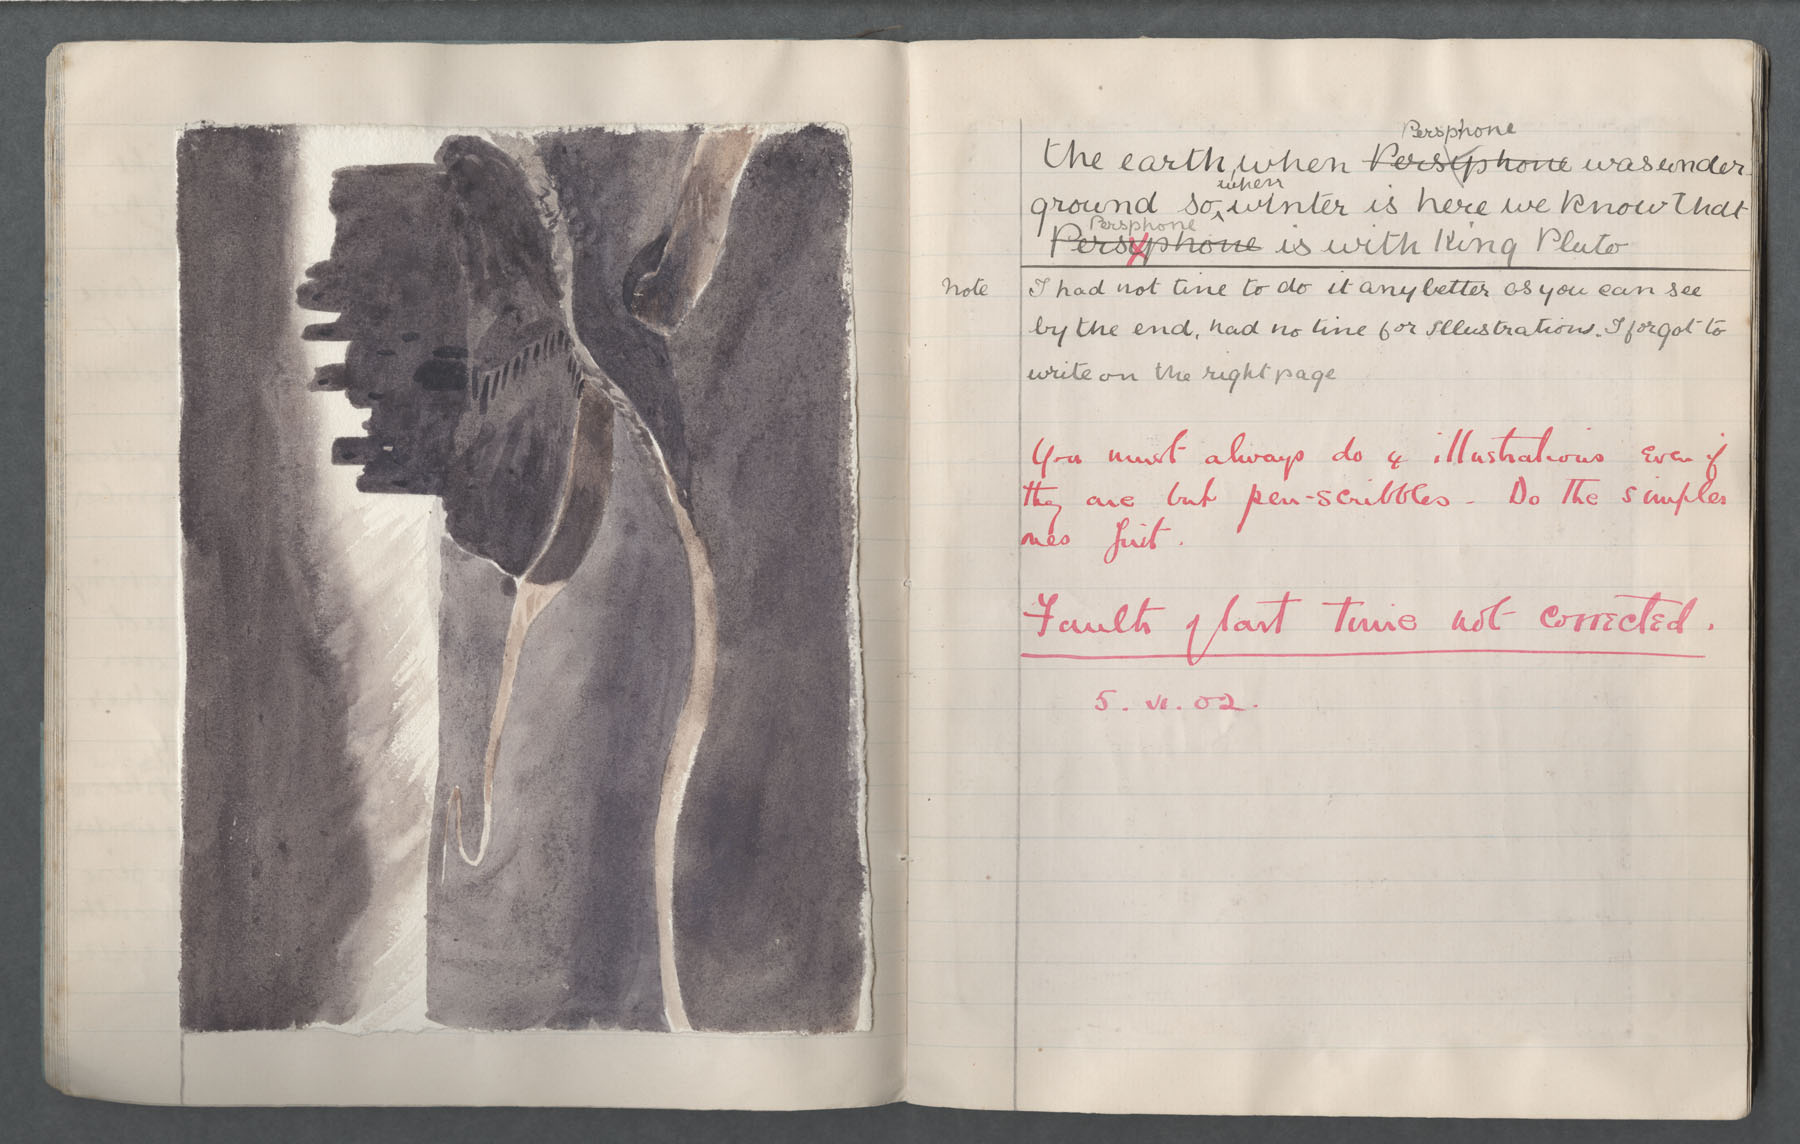 Persphone
the earth, when Persyphone was under-
ground so, when winter is here we know that
Persphone
Persyphone is with King Pluto
Note I had not tine to do it any better as you can see
by the end, had no tine for illustrations. I forgot to
write on the right page
You must always do 4 illustrations even if
they are but pen-scribbles - Do the simples
ones first.
Faults of last time not corrected.
5. VI. 02.